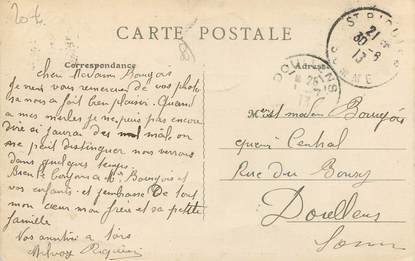 20-6
CARTE POSTALE
Correspondance
Adresse
ST RIQUIER
SOMME
21
30-8
13
DOULLENS
Cher Madame Bourgois
Je veut vous remercier de vos photo
sa nous a fait bien plaisir. Quand
a mes merles je ne puis pas encore
dire si j'aurai des mal, on
ne peut distinguer nous verrons
dans quelques temps.
Bien le bonjour a Mr Bourgois et
vos enfants et j'embrasse de tout
mon cœur mon frère et sa petite
famille
Vos ami a tous
et madame Bourgois
quai Central
Rue du Bourg
Doullens
Somme